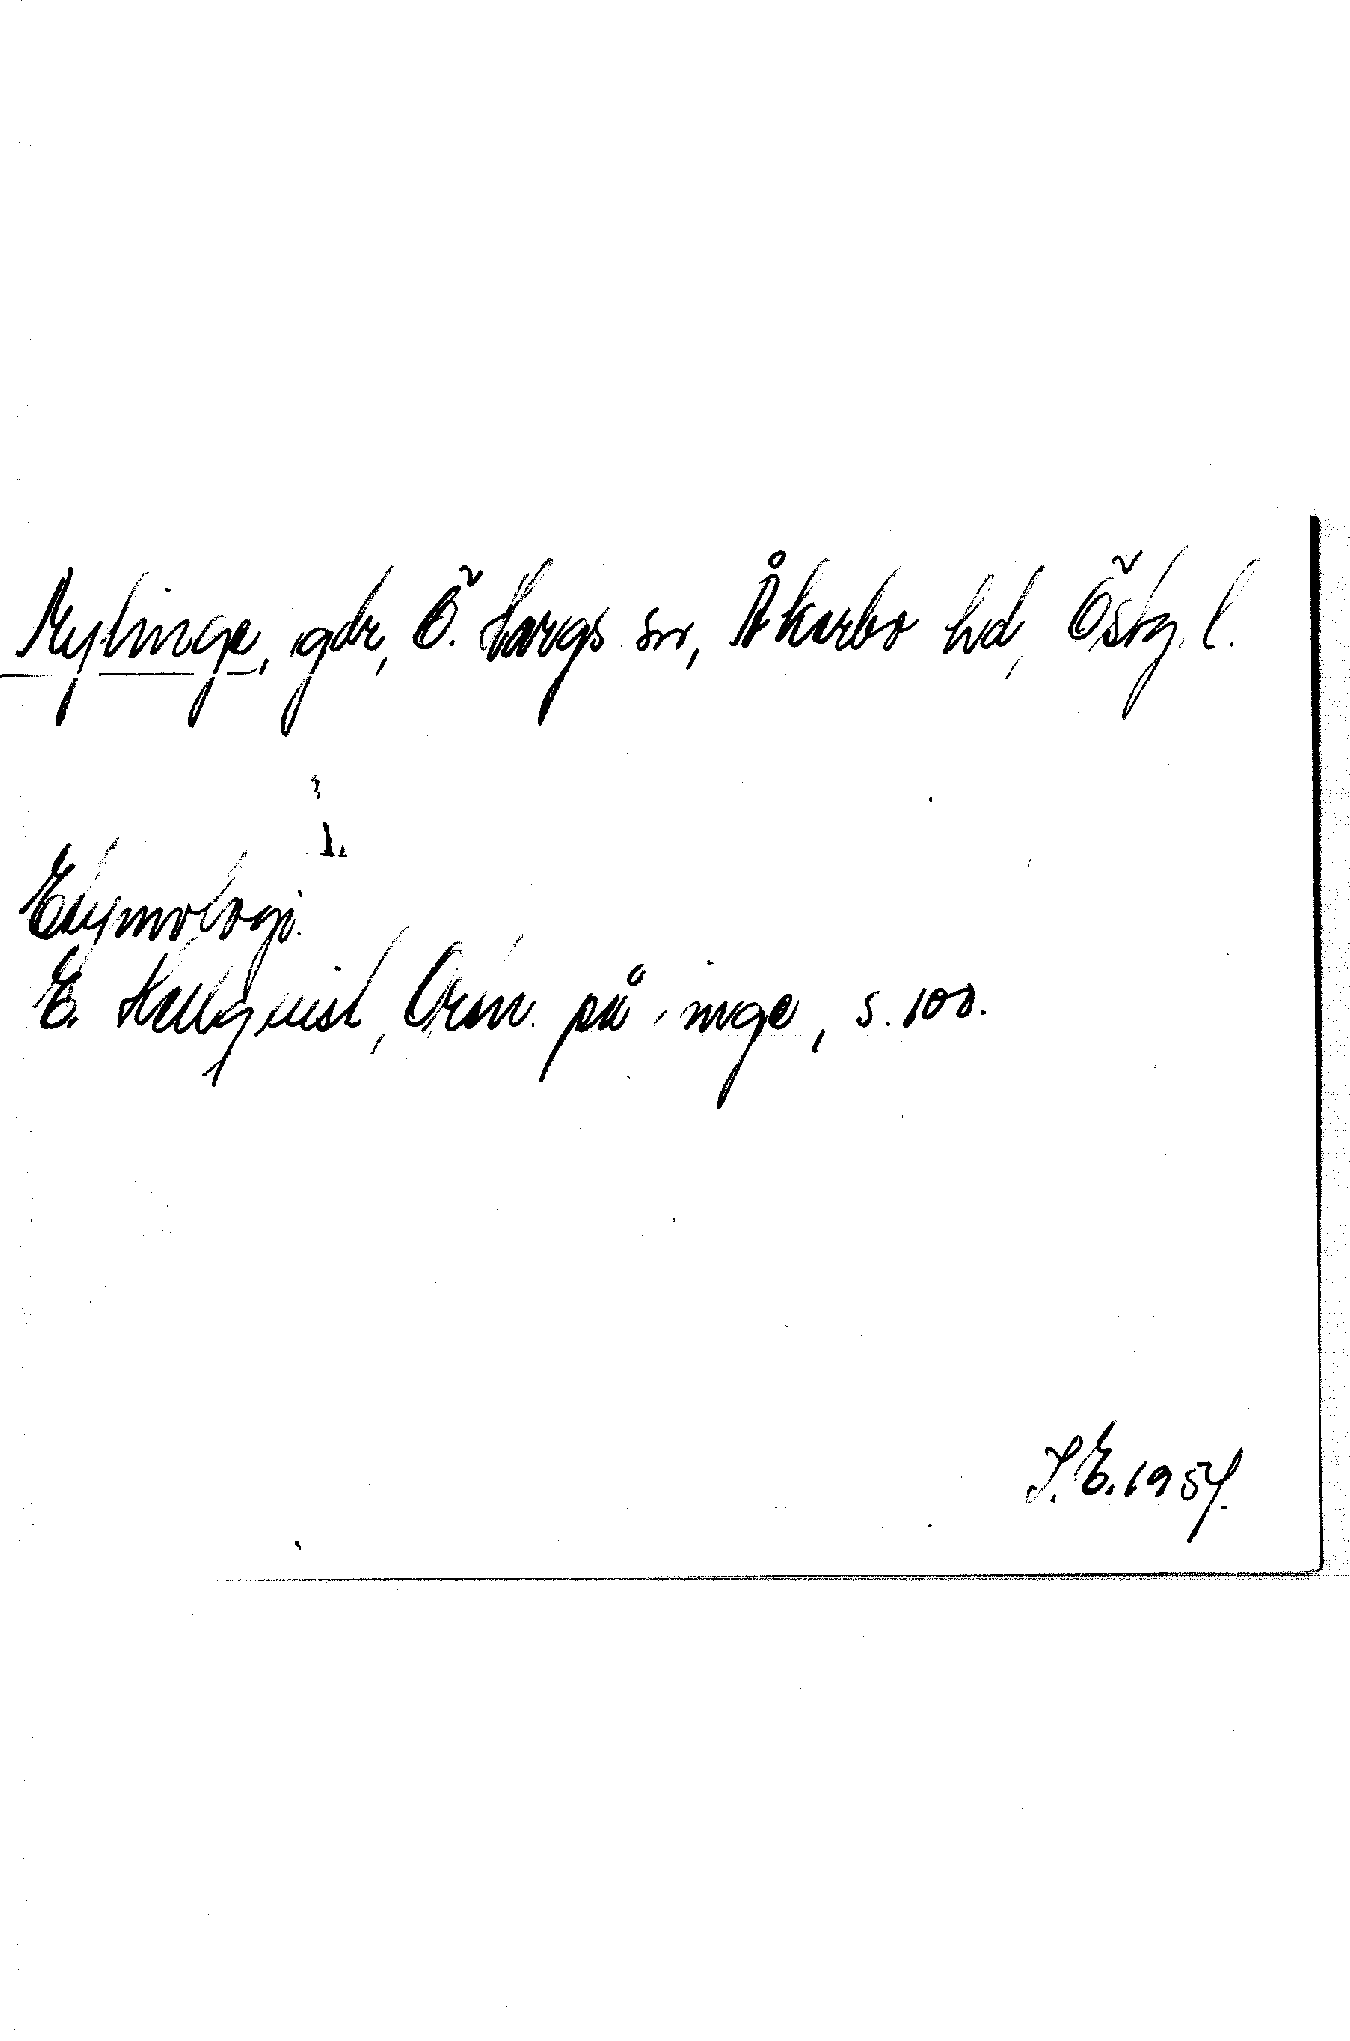 Mylinge, gdr, Ö. Hargs sn, Åkerbo hd, Östg. l.
Etymologi.
E. Hellquist, Ortn. på -inge, s. 100.
S.E. 1954.